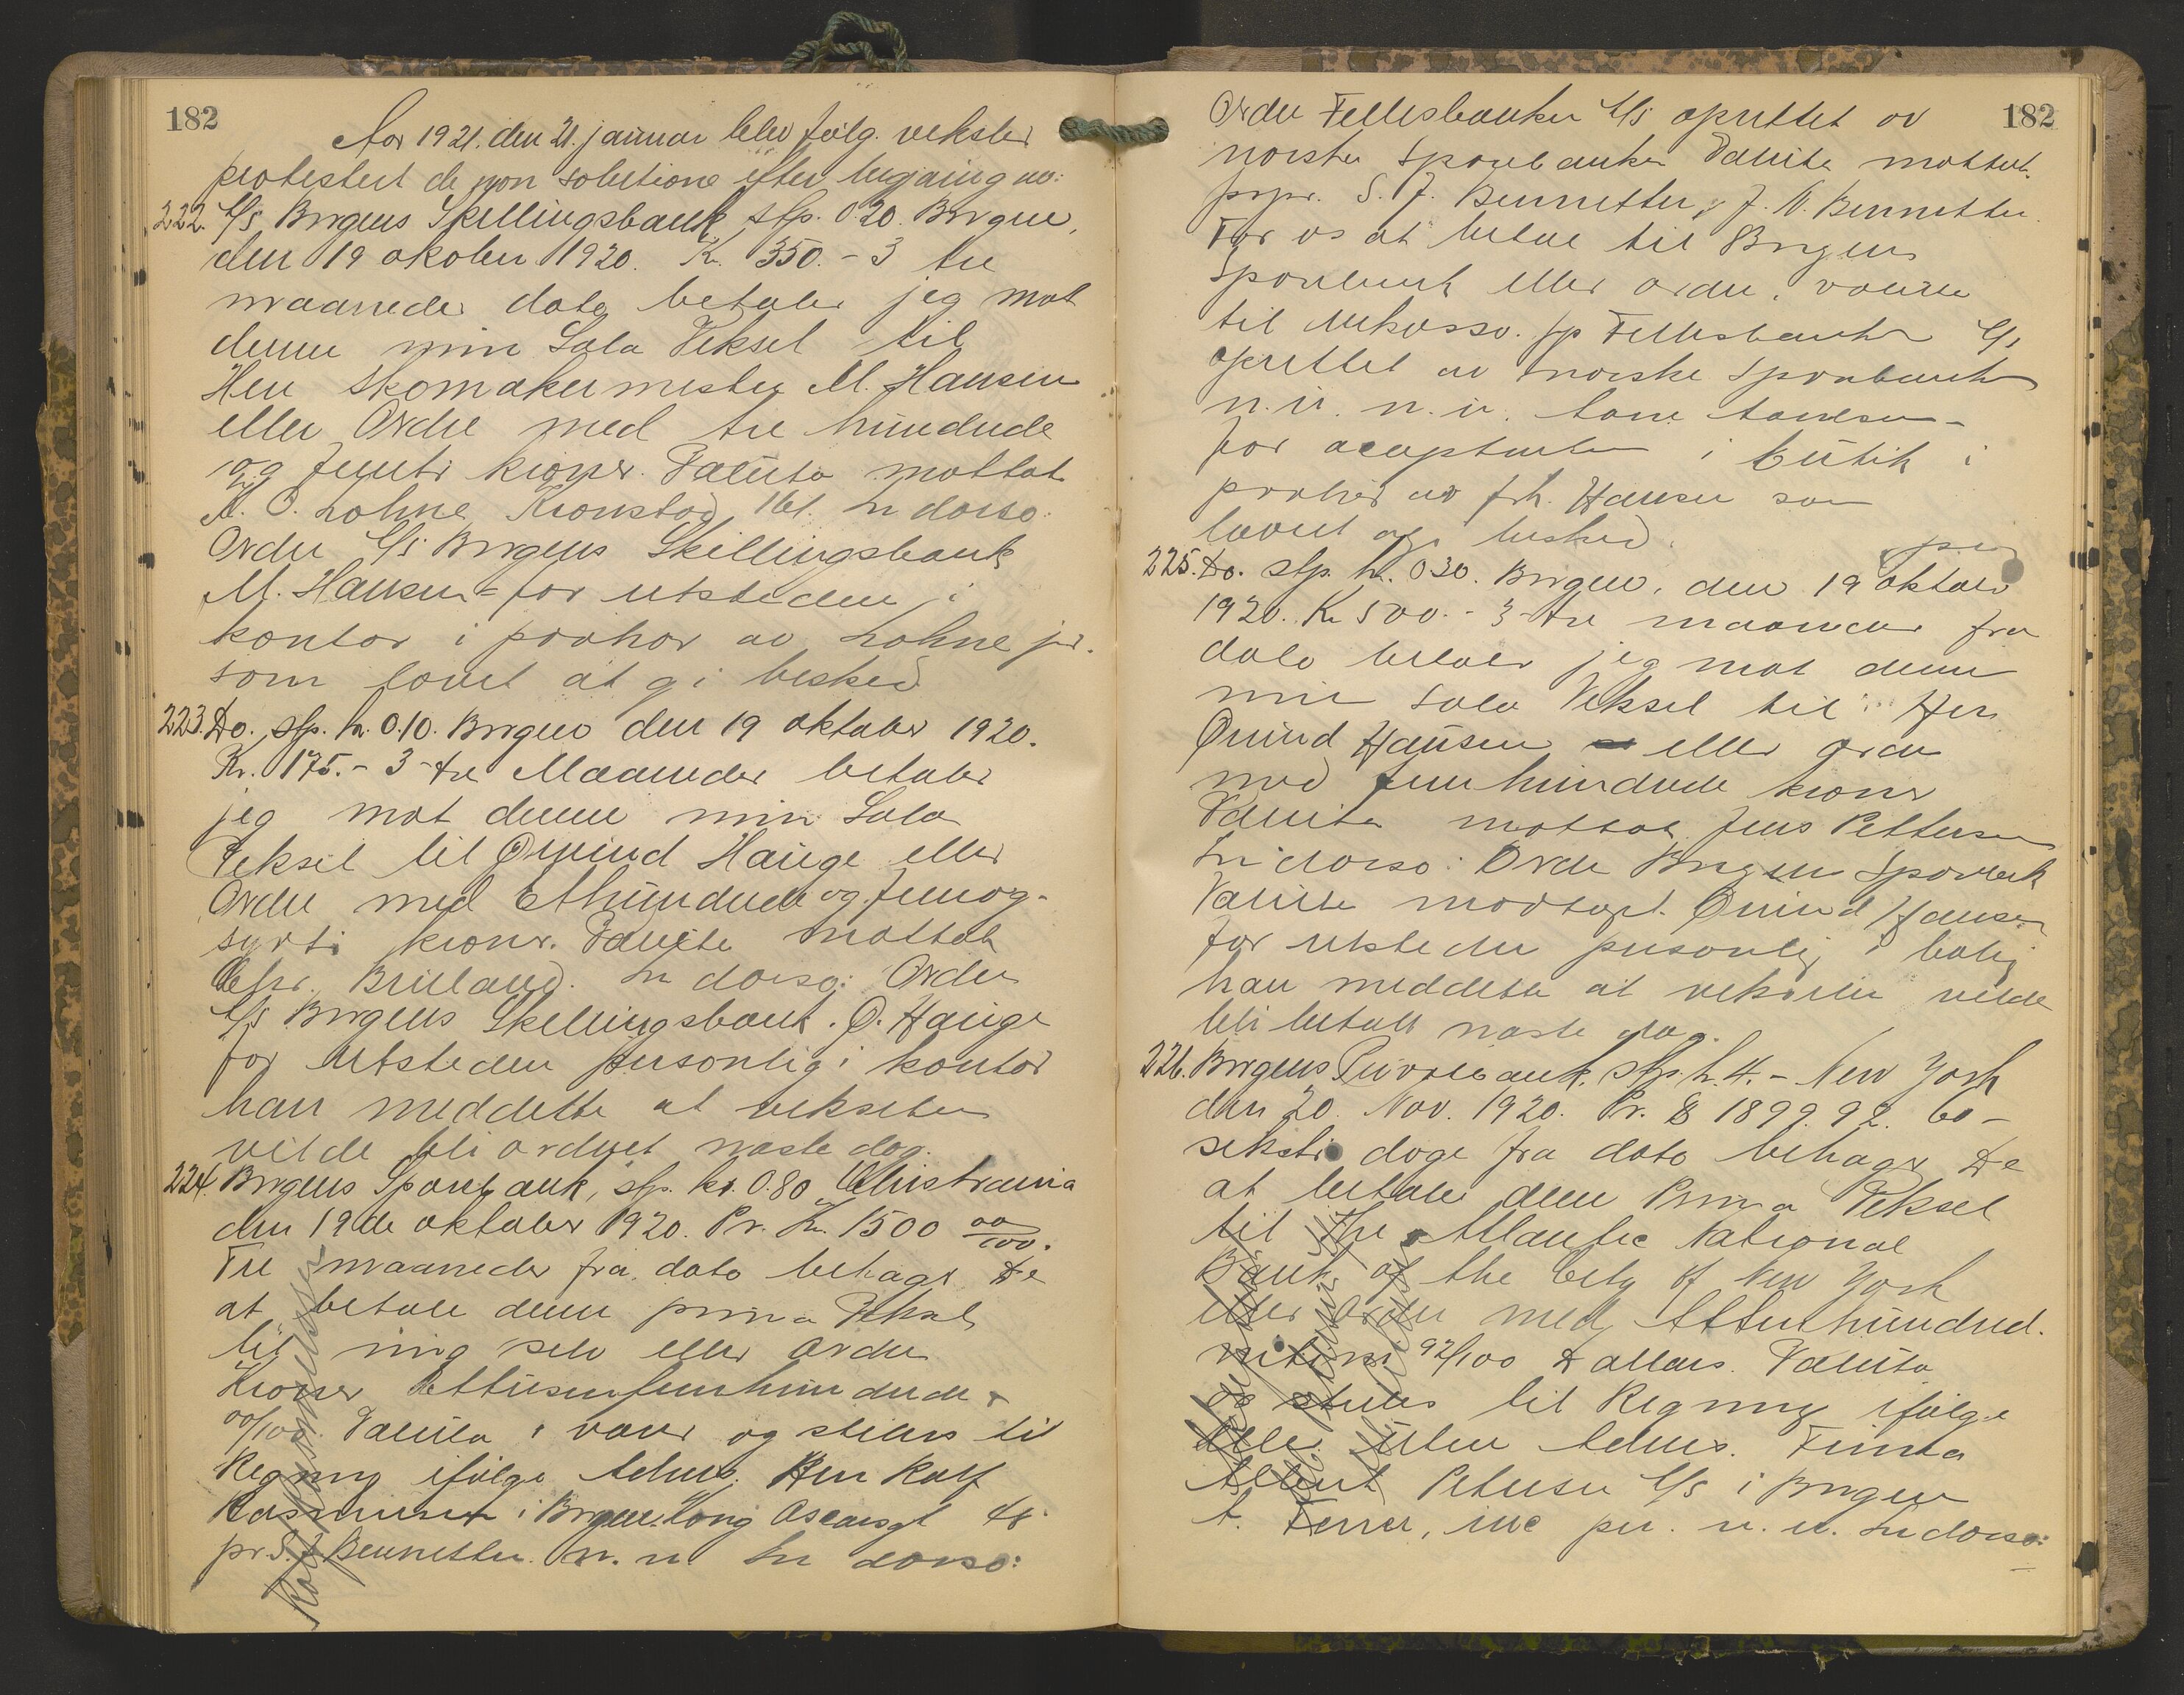 182
Aar 1921. den 21. januar blev følg. veksler
protestert de non solutione efter begjæring av:
222. A/S Bergens Skillingsbank stp. 0.20. Bergen,
den 19 okober 1920. Kr. 350.- 3 tre
maaneder dato betaler jeg mot
denne min Sola Veksel til
Herr Skomakermester M. Hansen
eller Ordre med tre hundrede
og femti kroner. Valuta mottat.
A. O. Lohne Kronstad 161. In dorso:
Ordre A/S Bergens Skillingsbank
M. Hansen - for utstederen i
kontor i paahør av Lohne jr.
som lovet at gi besked
223. Do. stp. kr. 0.10. Bergen den 19 oktober 1920.
Kr. 175.- 3-tre Maaneder betaler
jeg mot denne min Sola
Veksel til Øivind Hauge eller
Ordre med Ethundrede og femog-
sytti kroner. Valuta mottat
Chr. Bruland. In dorso: Ordre
A/S Bergens Skillingsbank. Ø. Hauge
for utstederen personlig i kontor
han meddelte at vekselen
vilde bli ordnet næste dag.
224. Bergens Sparebank, stp. kr. 0.80 Christiania
den 19de oktober 1920. Pr. Kr. 1500 00/100.
Tre maaneder fra dato behager De
at betale denne prima Veksel
til mig selv eller ordre
Kroner Ettusenfemhundrede
00/100. Valuta i varer og stilles til
Regning ifølge Advis. Herr Rolf
Rasmussen i Bergen Kong Oscarsgt 48
pr S. J. Bennetter. n. n. In dorso:
Rolf Rasmussen
182
Ordre Fellesbanken A/S oprettet av
norske Sparebanker Valuta mottat.
prpr. S. J. Bennetter, J. N. Bennetter.
For os at betale til Bergens
Sparebank eller ordre, værdien
til inkasso. pp Fellesbanken A/S
oprettet av norske Sparebanker
n. n. n. n.
for acceptanten i butik i
paahør av frk. Hansen som
lovet at gi besked.
225. Do. stp. kr. 0.30. Bergen, den 19 oktober
1920. Kr 500.- 3-tre maaneder fra
dato betaler jeg mot denne
min sola Veksel til Herr
Øivind Hansen eller ordre
med femhundrede kroner
Valuta mottat. Jens Pettersen
In dorso: Ordre Bergens Sparebank
Valuta modtaget. Øivind Hansen
for utstederen personlig i bolig
han meddelte at vekselen vilde
bli betalt næste dag.
226. Bergens Privatbank, stp. kr. 4.- New York
den 20. Nov. 1920. Pr. $ 1899.92. 60-
seksti dage fra dato behager De
at betale denne Prima Veksel
til The Atlantic National
Bank of the City of New York
eller Ordre med Attenhundred.
nittini 92/100 Dollars. Valuta
og stilles til Regning ifølge
eller uten Advis. Firma
Albert Petersen A/S i Bergen
A. Ferrer, inc per. n. n. In dorso: